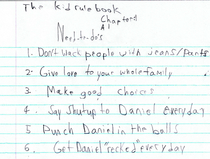 The kid rule book
Chapter 1
A1
Need-to-do's
1. Don't wack people with jeans/pants
2. Give love to your whole family
3. Make good choices
4. Say Shutup to Daniel Everyday
5. Punch Daniel in the balls
6. Get Daniel "recked" everyday